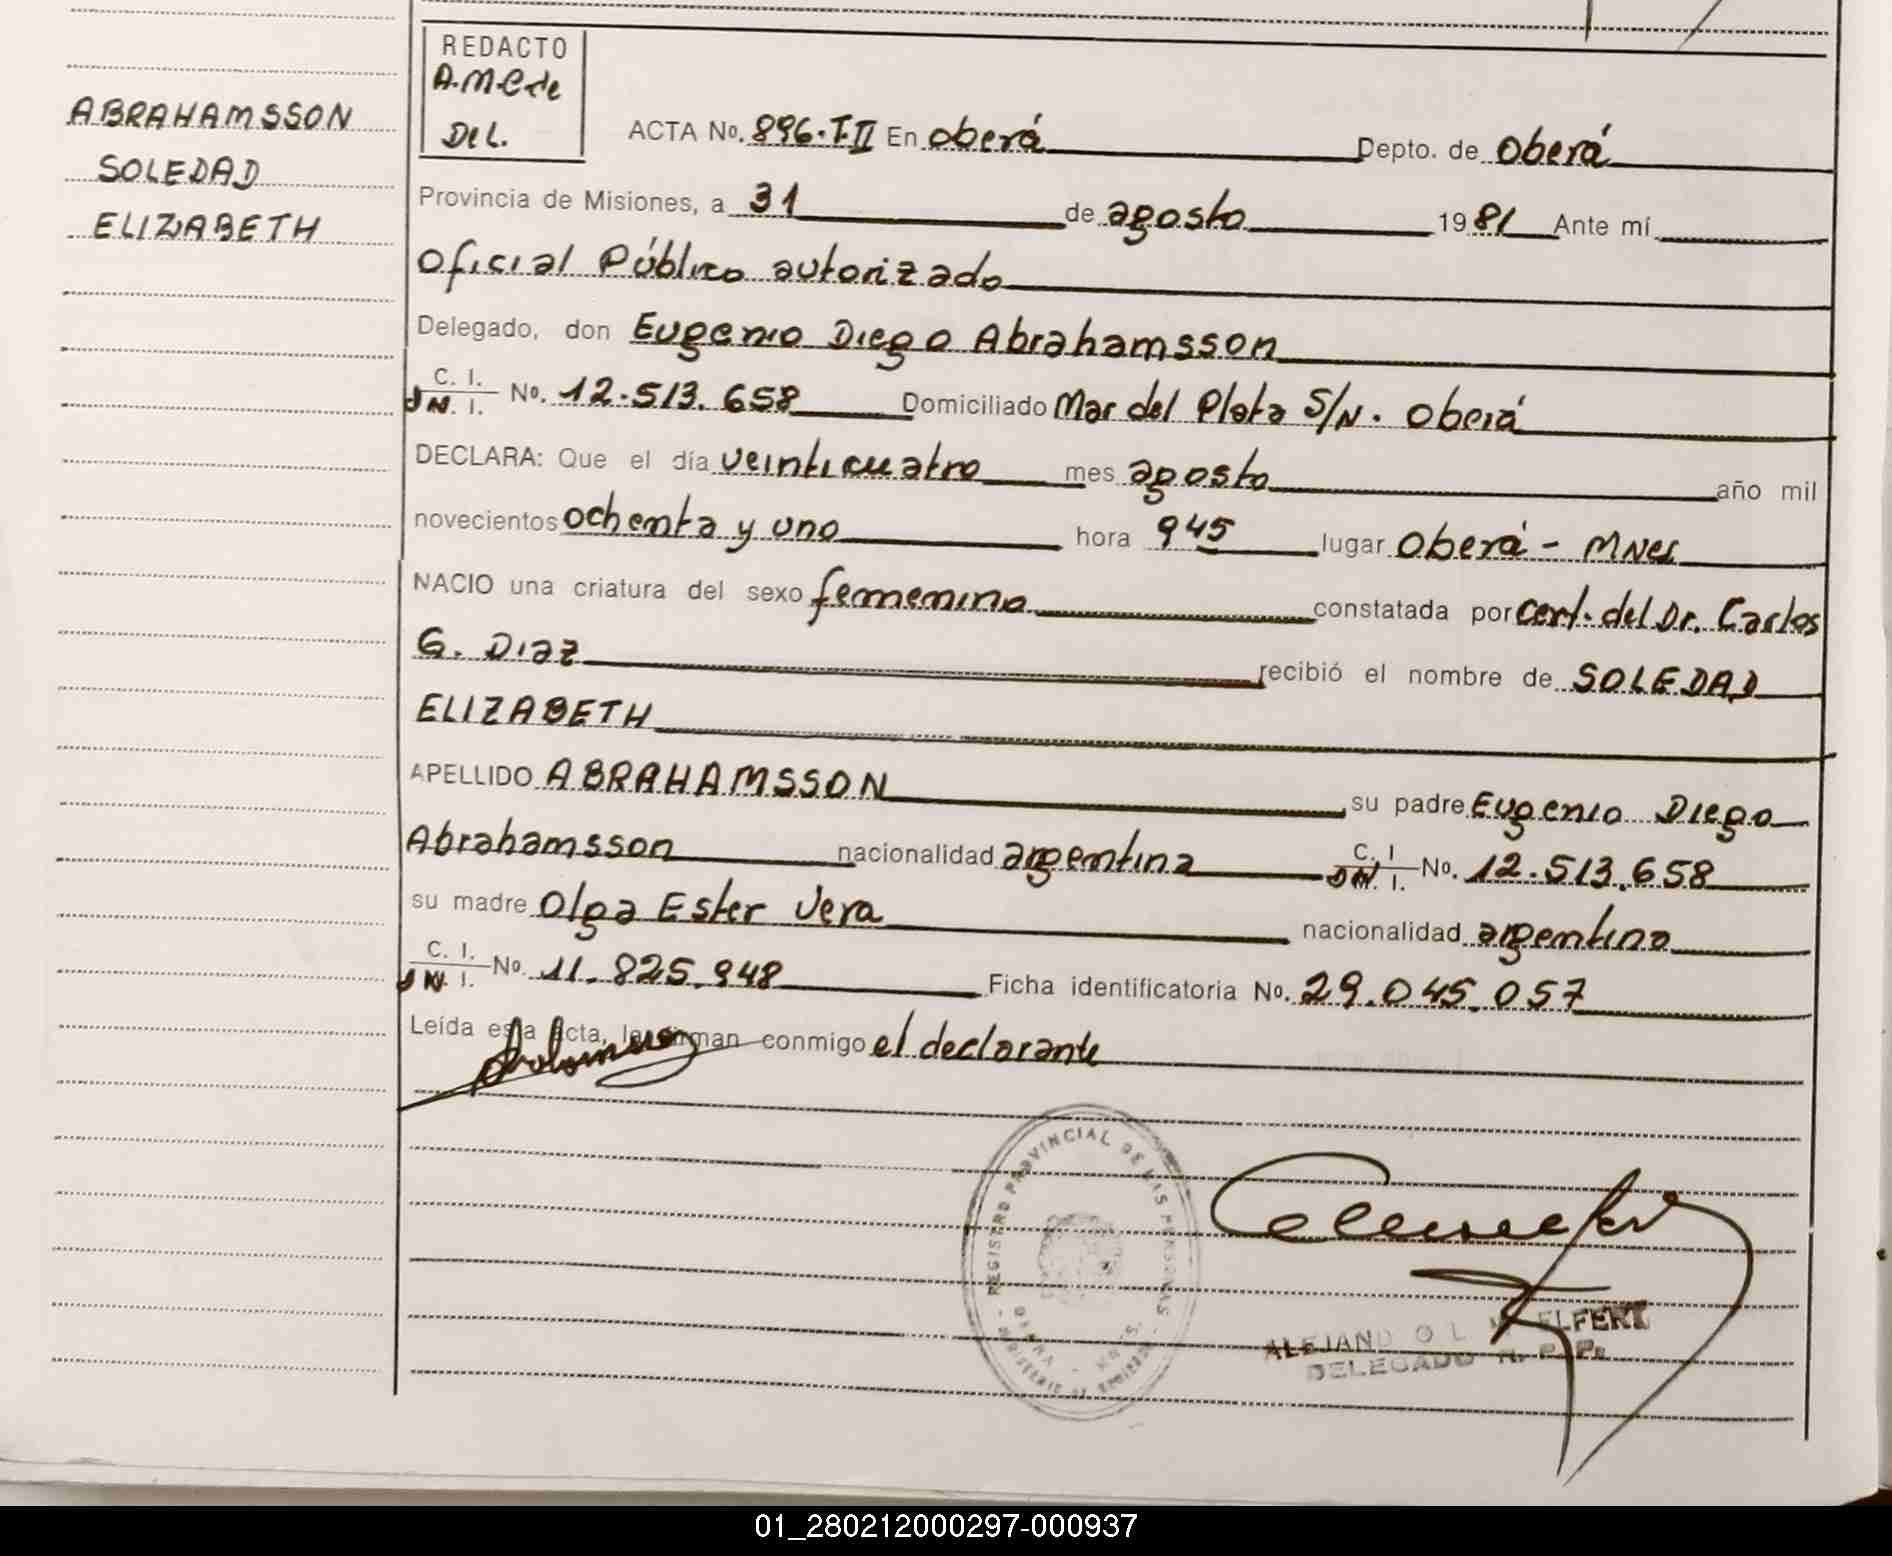 REDACTO
A.M.C de
Del.
ABRAHAMSSON
SOLEDAD
ELIZABETH
ACTA No. 896.T.II En Oberá Depto. de Oberá
Provincia de Misiones, a 31 de agosto 1981 Ante mí
Oficial Público autorizado
Delegado, don Eugenio Diego Abrahamsson
C. I. D N. I. No. 12.513.658 Domiciliado Mar del Plata S/N. Oberá
DECLARA: Que el día veinticuatro mes agosto año mil
novecientos ochenta y uno hora 945 lugar Oberá - Mnes
NACIO una criatura del sexo femenino constatada por cert. del Dr. Carlos
G. Diaz recibió el nombre de SOLEDAD
ELIZABETH
APELLIDO ABRAHAMSSON su padre Eugenio Diego
Abrahamsson nacionalidad argentina C. I D N. I. No. 12.513.658
su madre Olga Ester Vera nacionalidad argentina
C. I. D N. I. No. 11.825.948 Ficha identificatoria No. 29.045.057
Leída esta acta, la firman conmigo el declarante
REGISTRO PROVINCIAL DE LAS PERSONAS
DELEGADO R. P. P.
01_280212000297-000937